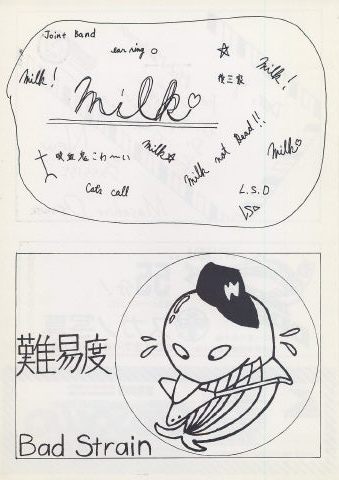 Joint Band
ear ring
milk!
milk
milk!
milk
milk not Dead!!
milk
吸血鬼こわ〜い
Cats call
L.S.D
LSD
難易度
Bad Strain